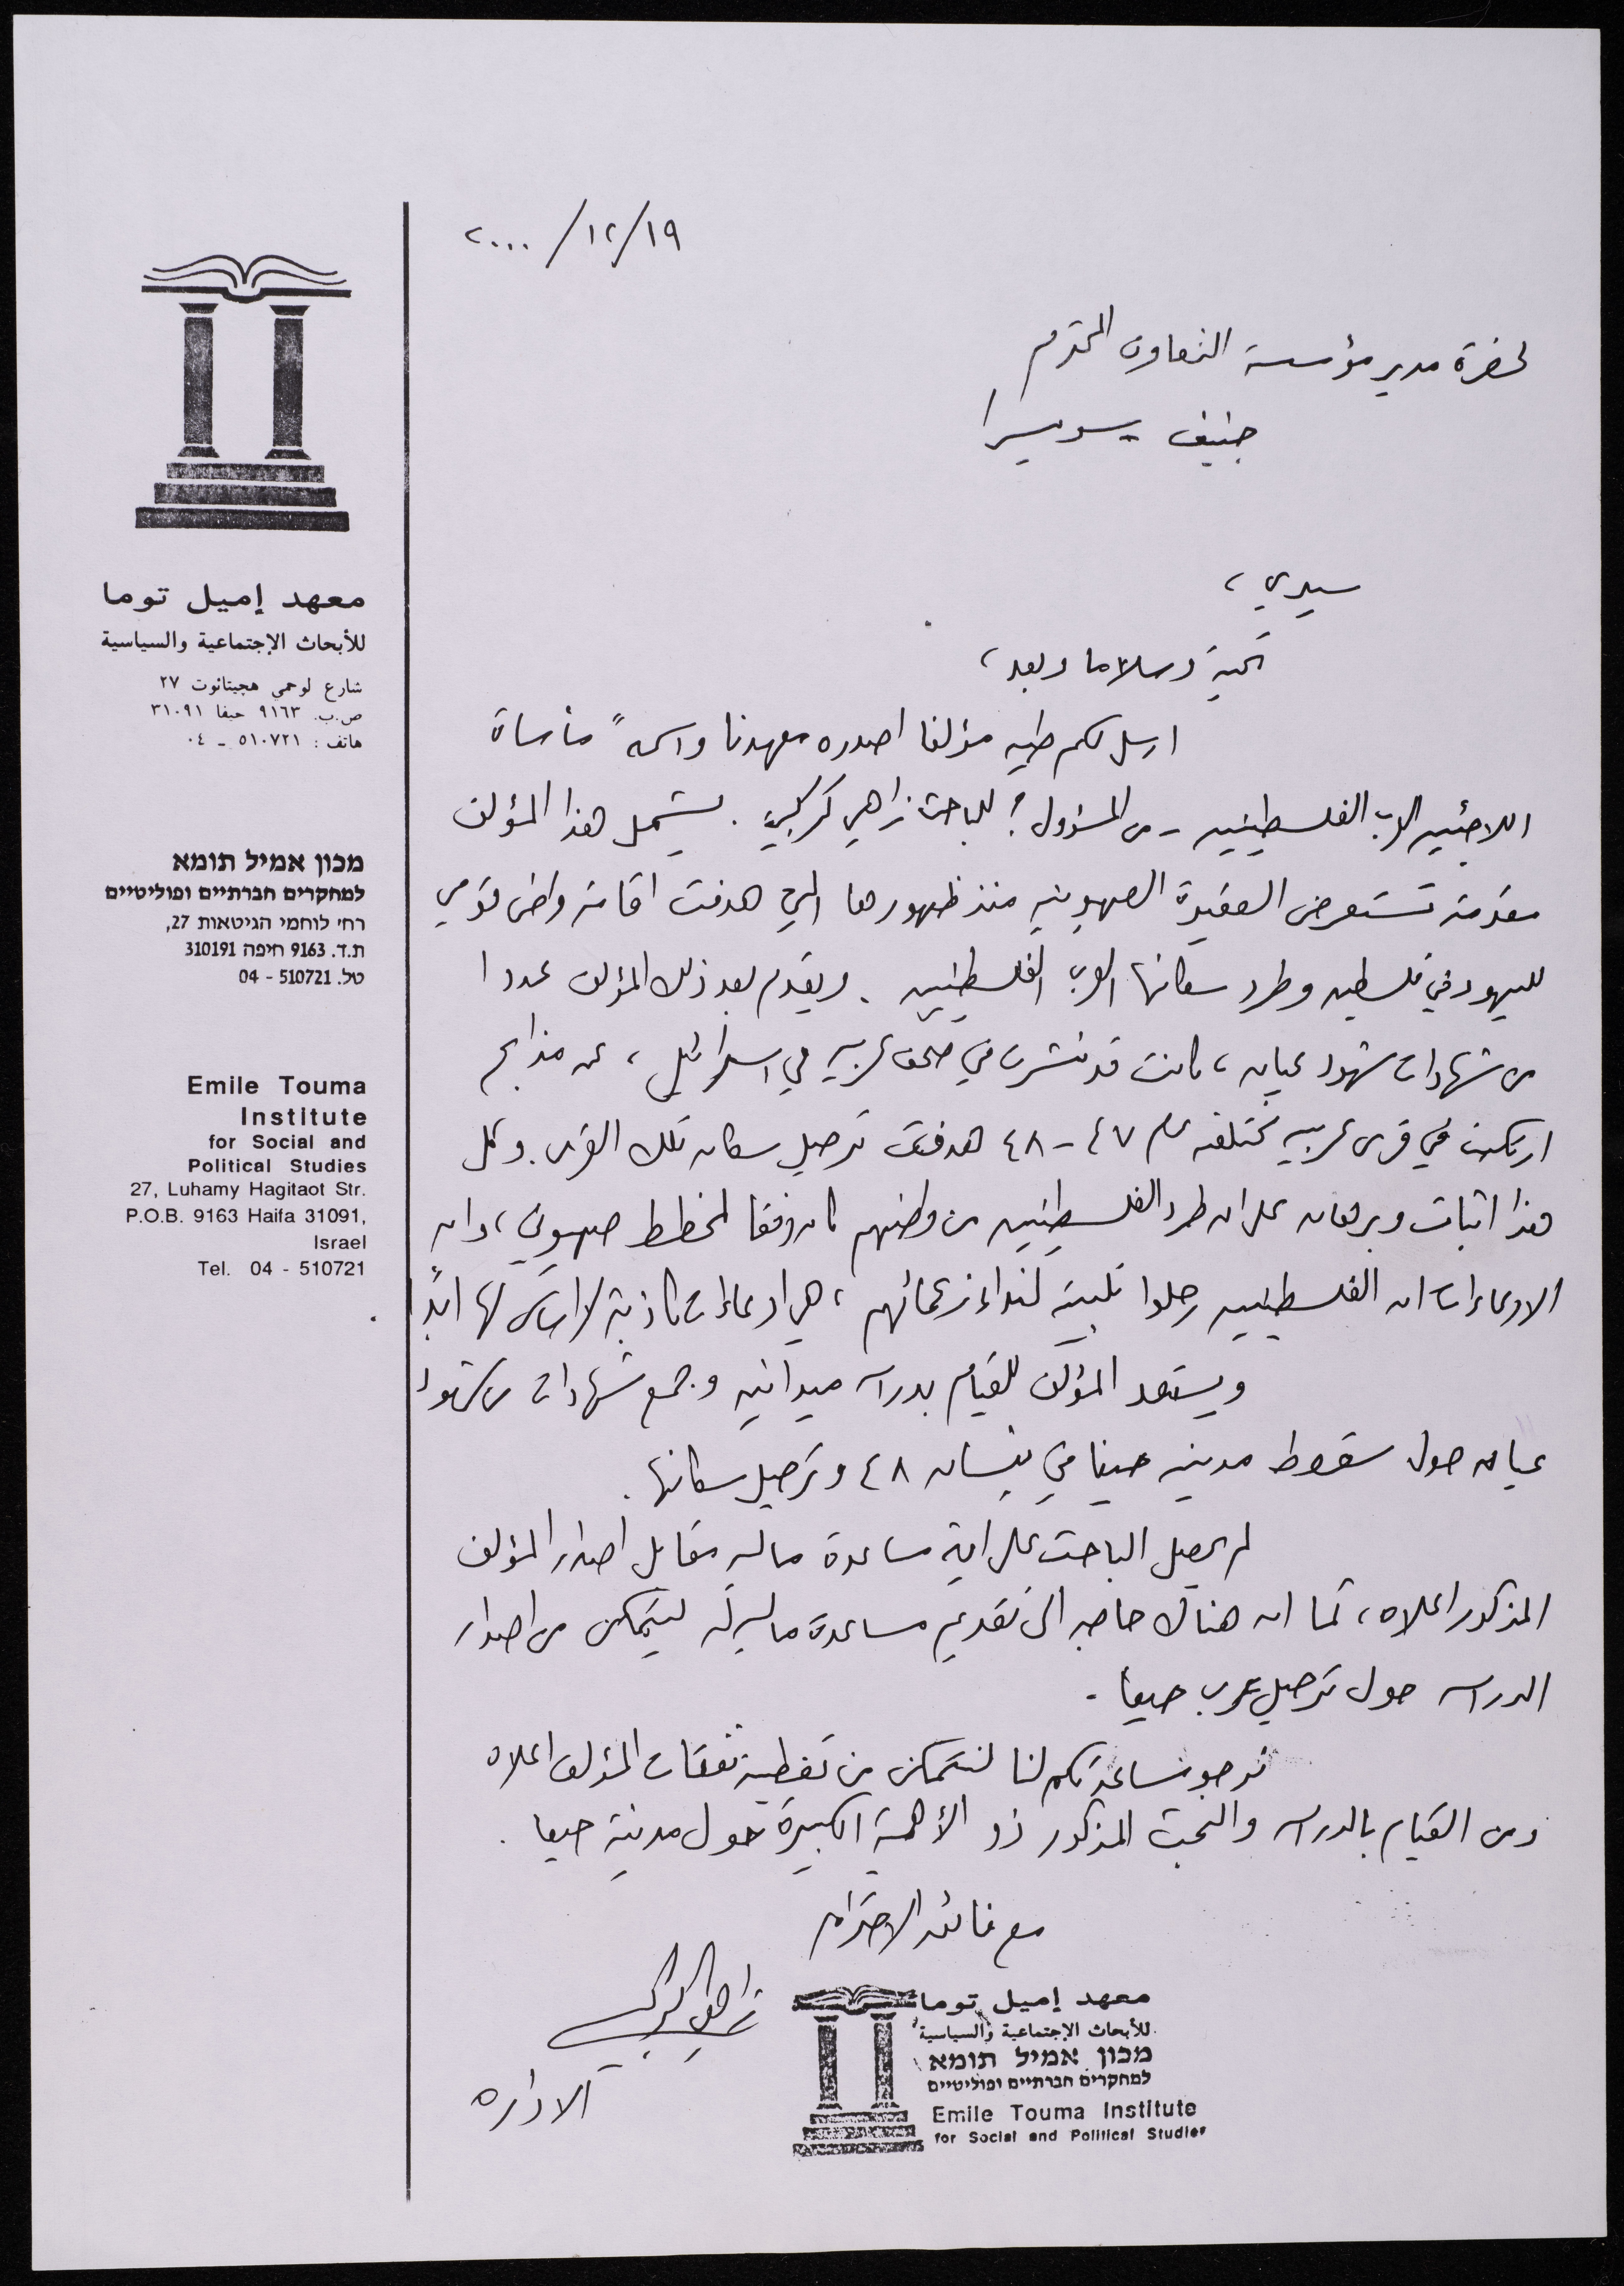 معهد إميل توما
للأبحاث الإجتماعية والسياسية
شارع لوحمي هجيتائوت ٢٧
ص.ب. ٩١٦٣ حيفا ٣١٠٩١
هاتف : ٥١٠٧٢١ - ٠٤
מכון אמיל תומא
למחקרים חברתיים ופוליטיים
רח׳ לוחמי הגיטאות 27,
ת.ד. 9163 חיפה 310191
טל. 510721 - 04
Emile Touma
Institute
for Social and
Political Studies
27, Luhamy Hagitaot Str.
P.O.B. 9163 Haifa 31091,
Israel
Tel. 04 - 510721
١٩/١٢/٢٠٠٠
لحضرة مدير مؤسسة التعاون المحترم
جنيف - سويسرا
سيدي،
تحية وسلاما وبعد،
ارسل لكم طيه مؤلفا اصدره معهدنا واسمه "مأساة
اللاجئين العرب الفلسطينيين - من المسؤول؟ للباحث زاهي كركبي". يشمل هذا المؤلف
مقدمة تستعرض العقيدة الصهيونية منذ ظهورها التي هدفت اقامة وطن قومي
لليهود في فلسطين وطرد سكانها العرب الفلسطينيين. ويقدم بعد ذلك المؤلف عددا
من شهادات شهود عيان، كانت قد نشرت في صحف عربية في اسرائيل، عن مذابح
ارتكبت في قرى عربية مختلفة عام ٤٧-٤٨ هدفت ترحيل سكان تلك القرى. وكل
هذا اثبات وبرهان على ان طرد الفلسطينيين من وطنهم كان وفقا لمخطط صهيوني، وان
الادعاءات ان الفلسطينيين رحلوا تلبية لنداء زعمائهم، هي ادعاءات كاذبة لا اساس لها ابدًا.
ويستعد المؤلف للقيام بدراسة ميدانية وجمع شهادات من شهود
عيان حول سقوط مدينة حيفا في نيسان ٤٨ وترحيل سكانها.
لم يحصل الباحث على اية مساعدة مالية مقابل اصدار المؤلف
المذكور اعلاه، كما ان هناك حاجة الى تقديم مساعدة مالية له ليتمكن من اصدار
الدراسة حول ترحيل عرب حيفا.
نرجو مساعدتكم لنا لنتمكن من تغطية نفقات المؤلف اعلاه
ومن القيام بالدراسة والبحث المذكور ذو الأهمية الكبيرة حول مدينة حيفا.
مع فائق الاحترام
زاهي كركبي
الادارة
معهد إميل توما
للأبحاث الإجتماعية والسياسية
מכון אמיל תומא
למחקרים חברתיים ופוליטיים
Emile Touma Institute
for Social and Political Studies